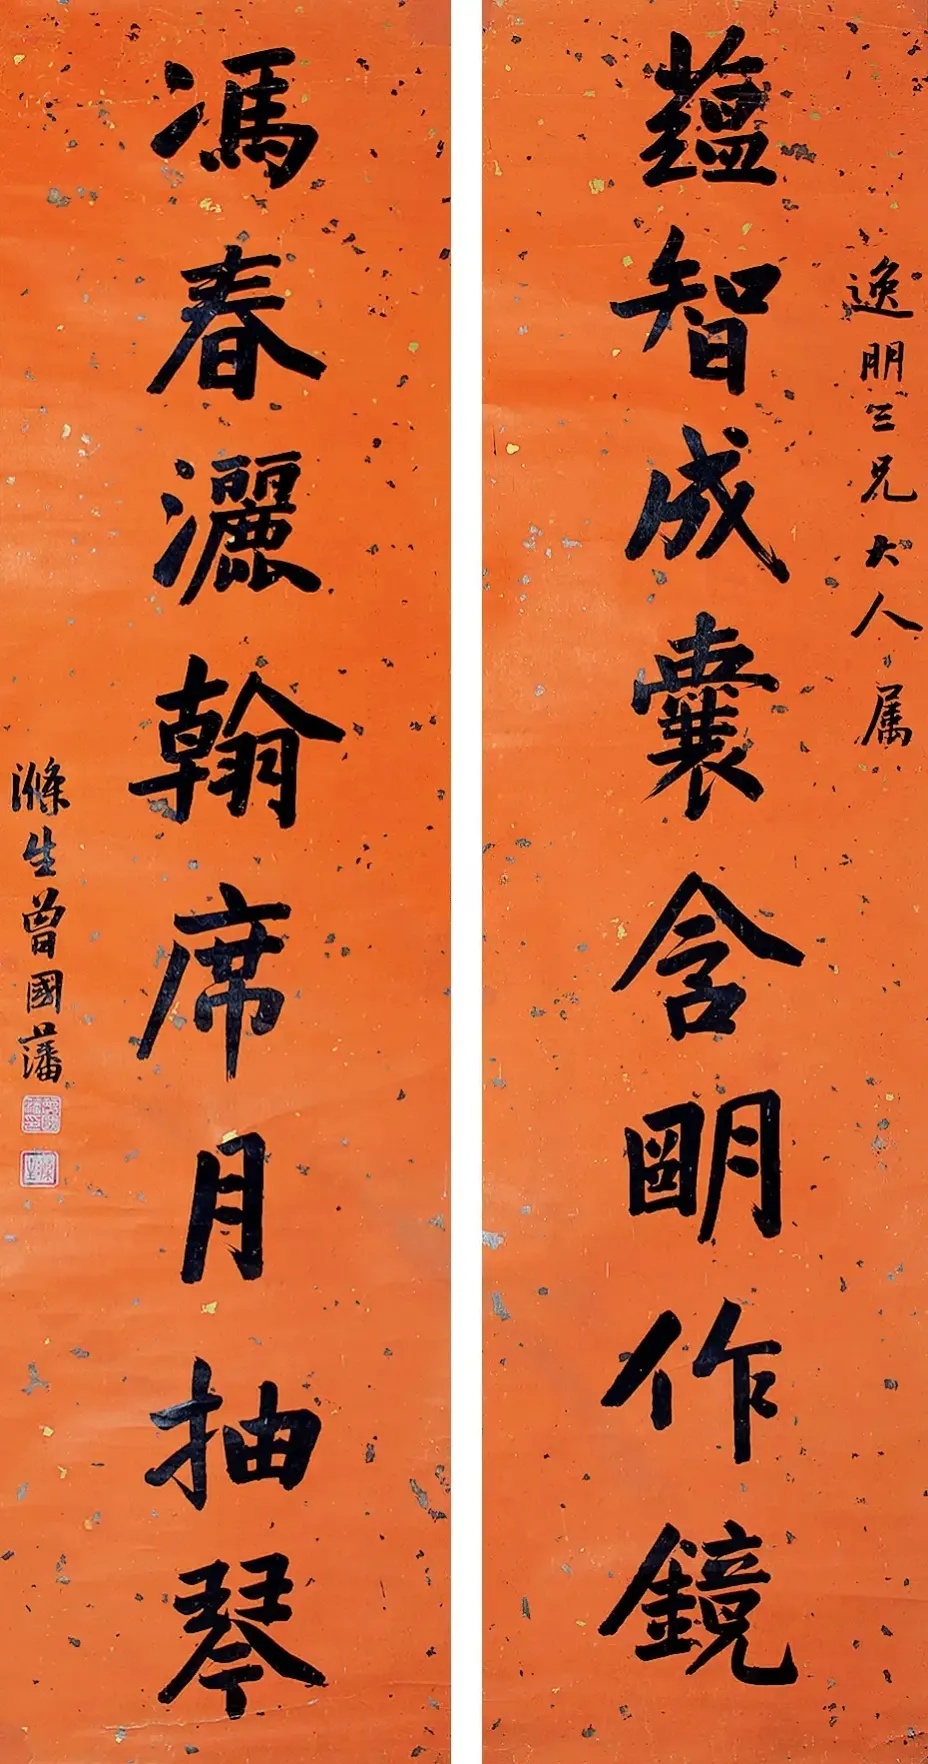 逸朋三兄大人属
蕴智成囊含明作鏡
馮春灑翰席月抽琴
滌生曾國藩